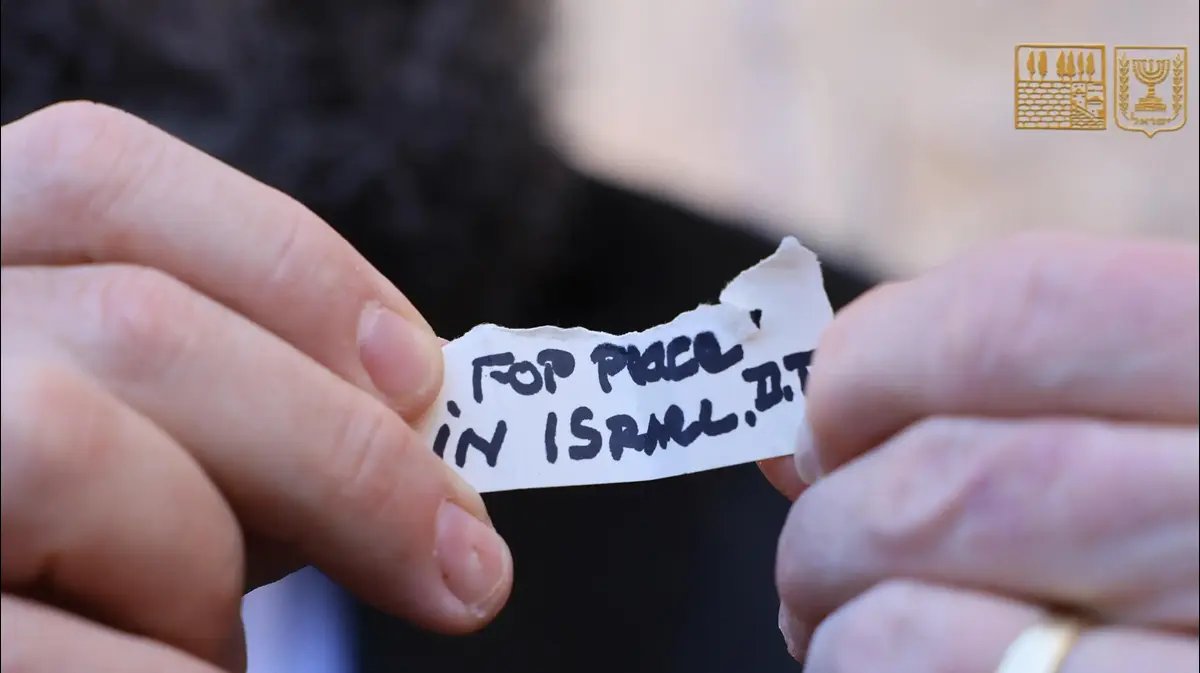 . FOR PEACE
IN ISRAEL. D.T
ישראל